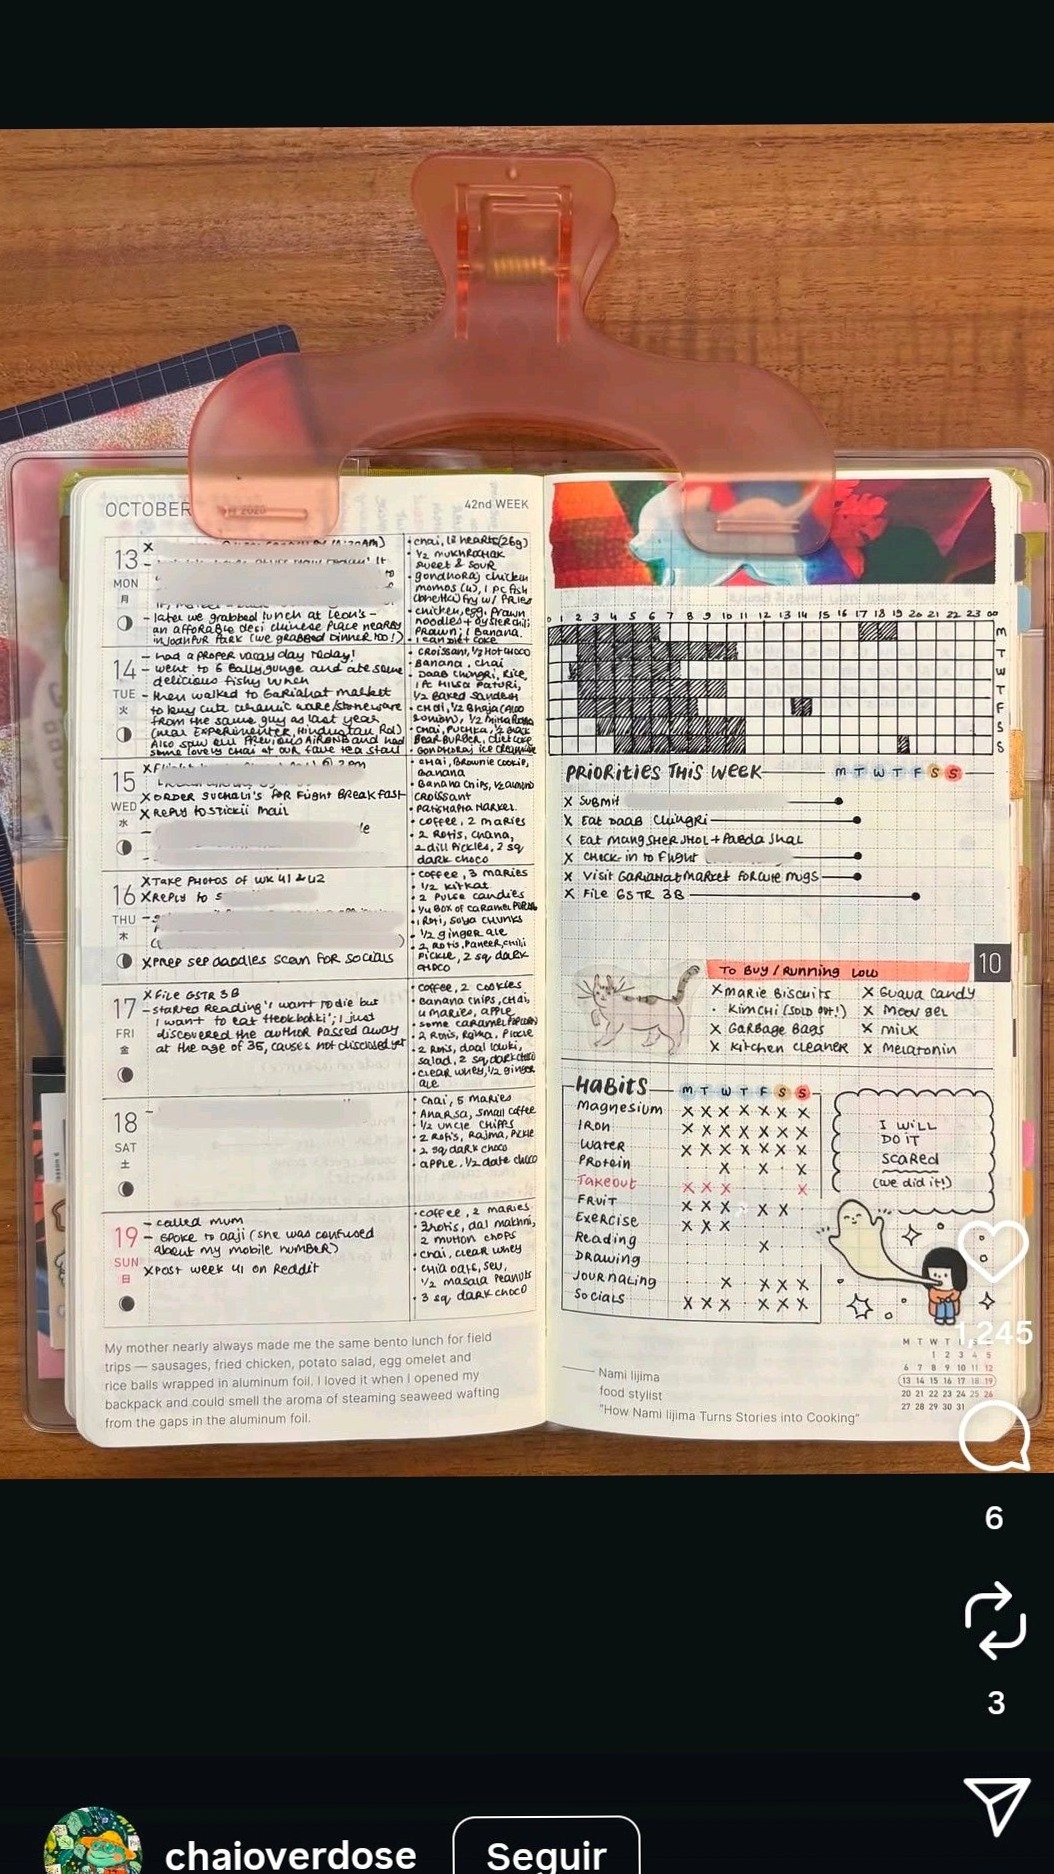 OCTOBER
42nd WEEK
13
MON
月
- later we grabbed lunch at Leon's -
an afforable desi chinese place nearby
in Jodhpur Park (we grabbed Dinner too!)
• chai, 18 hearts (26g)
• 1/2 mukhrochak
sweet & sour
• gondhoraj chicken
momos (4), 1 pc fish
• chicken, egg, prawn
noodles + oyster chili
prawn; 1 Banana.
14
TUE
火
- Had a proper vacay day today!
- went to 6 Ballygunge and ate some
delicious fishy lunch
- then walked to Gariahat market
to buy cute ceramic ware/stoneware
from the same guy as last year
(near Experimenter, Hindustan Rd)
Also saw our Previous AirBNB and had
some lovely chai at our fave tea stall
• croissant, 1/2 hot choco
• Banana, chai
• Daab chingri, Rice,
1 pc Hilsa Paturi,
1/2 Baked Sandesh
15
WED
水
X order suchali's for flight Breakfast
X Reply to stickii mail
• chai, Brownie cookie,
Banana
• Banana chips, 1/2 almond
croissant
• coffee, 2 maries
• 2 Rotis, chana,
2 dill pickles, 2 sq
dark choco
16
THU
木
X Take photos of wk 41 & 42
X Reply to
X Prep sep doodles scan for socials
• coffee, 3 maries
• 1/2 kitkat
• 2 Pulse candies
• 1 Roti, soya chunks
• 1/2 ginger ale
• 2 Rotis, Paneer, chili
Pickle, 2 sq dark
choco
17
FRI
金
X File GSTR 3B
- started reading 'I want to die but
I want to eat tteokbokki'; I just
discovered the author passed away
at the age of 35, causes not disclosed yet
• coffee, 2 cookies
• Banana chips, chai,
4 maries, apple
• some caramel popcorn
• 2 Rotis, Rajma, Pickle
• 2 Rotis, daal lauki,
salad, 2 sq dark choco
• clear whey, 1/2 ginger
ale
18
SAT
土
• Chai, 5 maries
• Anarsa, small coffee
• 1/2 uncle chipps
• 2 Rotis, Rajma, Pickle
• 2 sq dark choco
• apple, 1/2 date choco
19
SUN
日
- called mum
- spoke to aaji (she was confused
about my mobile number)
X Post week 41 on Reddit
• coffee, 2 maries
• 3 rotis, dal makhni,
2 mutton chops
• chai, clear whey
• chia oats, sev,
1/2 masala peanuts
• 3 sq dark choco
My mother nearly always made me the same bento lunch for field
trips — sausages, fried chicken, potato salad, egg omelet and
rice balls wrapped in aluminum foil. I loved it when I opened my
backpack and could smell the aroma of steaming seaweed wafting
from the gaps in the aluminum foil.
0 1 2 3 4 5 6 7 8 9 10 11 12 13 14 15 16 17 18 19 20 21 22 23 00
M
T
W
T
F
S
S
PRIORITIES THIS WEEK M T W T F S S
X Submit
X Eat Daab Chingri
< Eat Mangsher Jhol + Pabda Jhal
X Check-in to Flight
X Visit Gariahat Market for cute mugs
X File GSTR 3B
10
To Buy / Running Low
X Marie Biscuits
• Kimchi (sold out!)
X Garbage Bags
X Kitchen Cleaner
X Guava candy
X Moov gel
X Milk
X Melatonin
HABITS M T W T F S S
Magnesium X X X X X X X
Iron X X X X X X X
Water X X X X X X X
Protein X X X
Takeout X X X X
Fruit X X X X X
Exercise X X X
Reading X
Drawing
Journaling X X X X
Socials X X X X X X
I WILL
DO IT
SCARED
(we did it!)
Nami Iijima
food stylist
"How Nami Iijima Turns Stories into Cooking"
M T W T
1 2 3 4 5
6 7 8 9 10 11 12
13 14 15 16 17 18 19
20 21 22 23 24 25 26
27 28 29 30 31
1,245
6
3
chaioverdose
Seguir